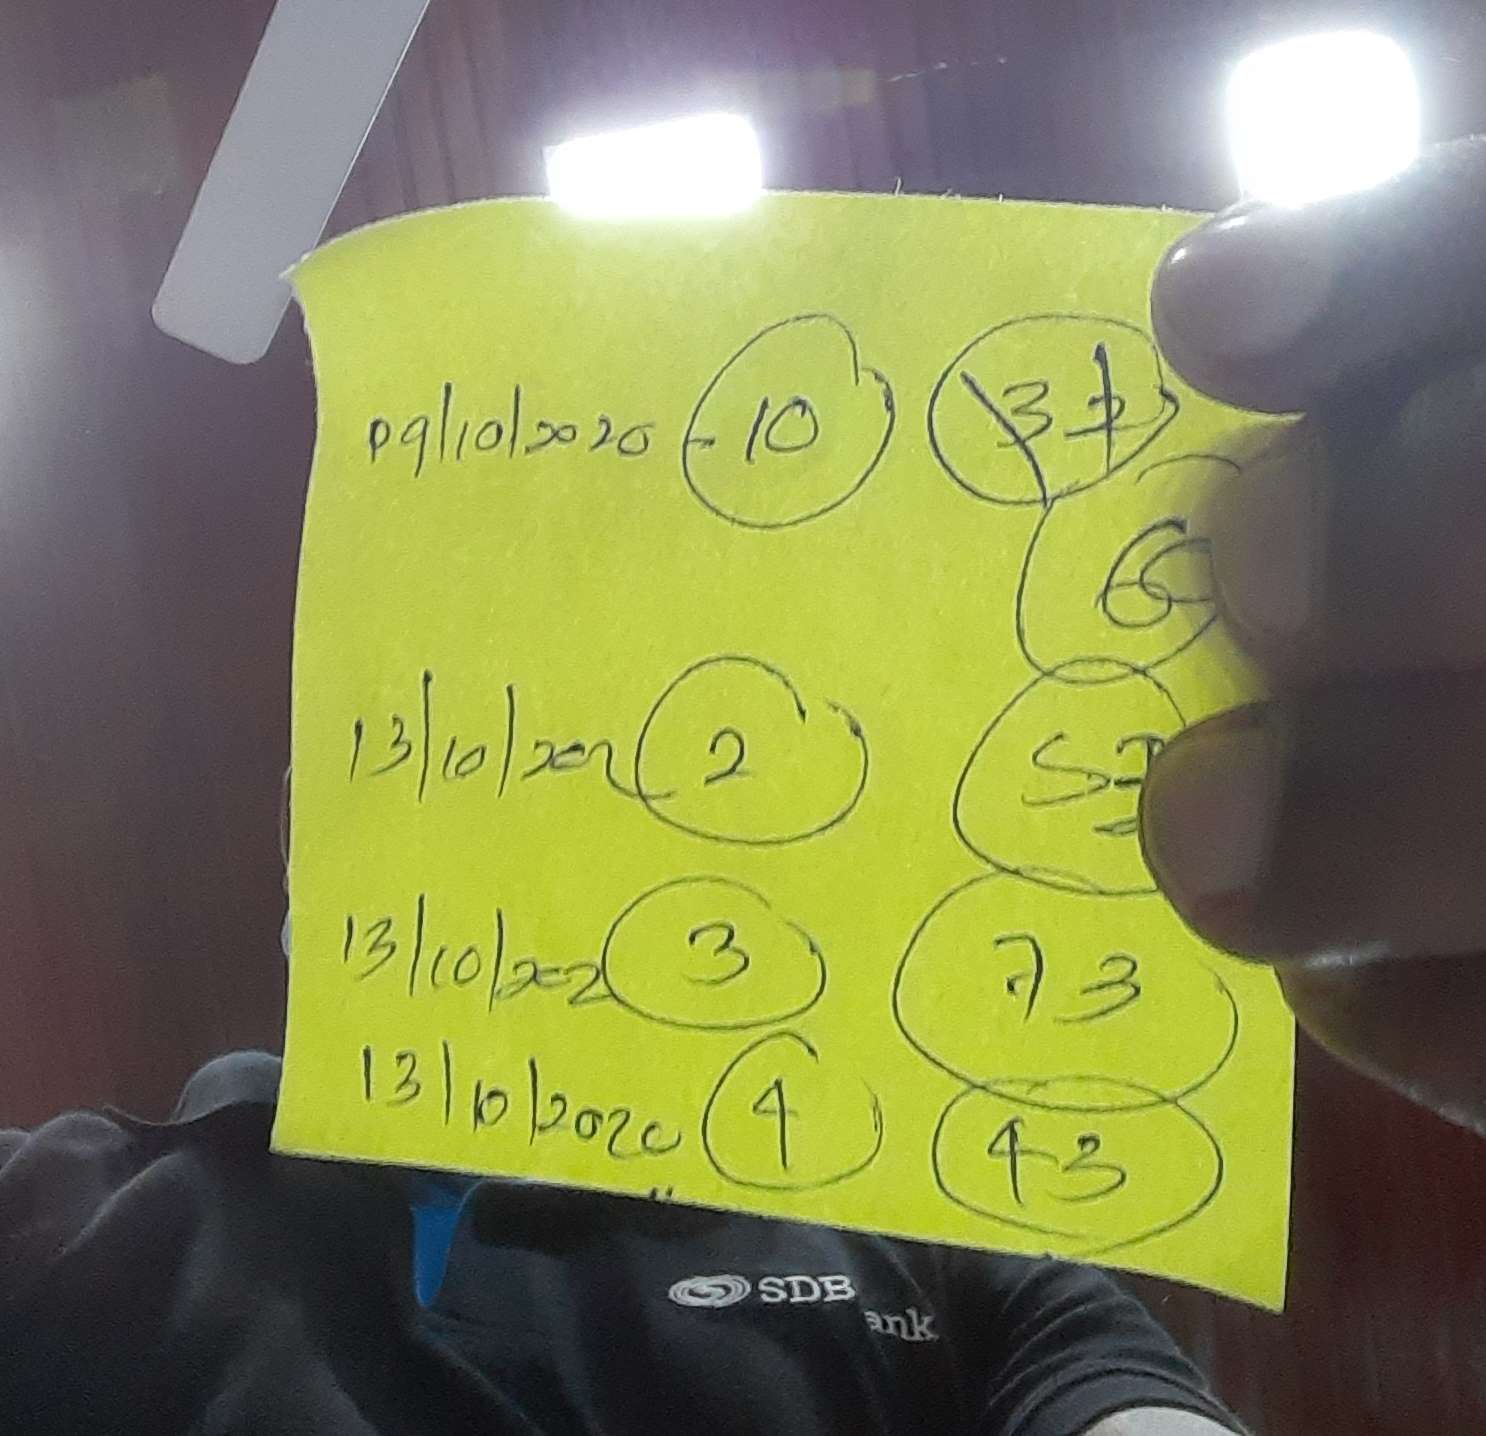 09/10/2020 - 10
6
13/10/202 2
13/10/202 3 73
13/10/2020 4 43
SDB
ank